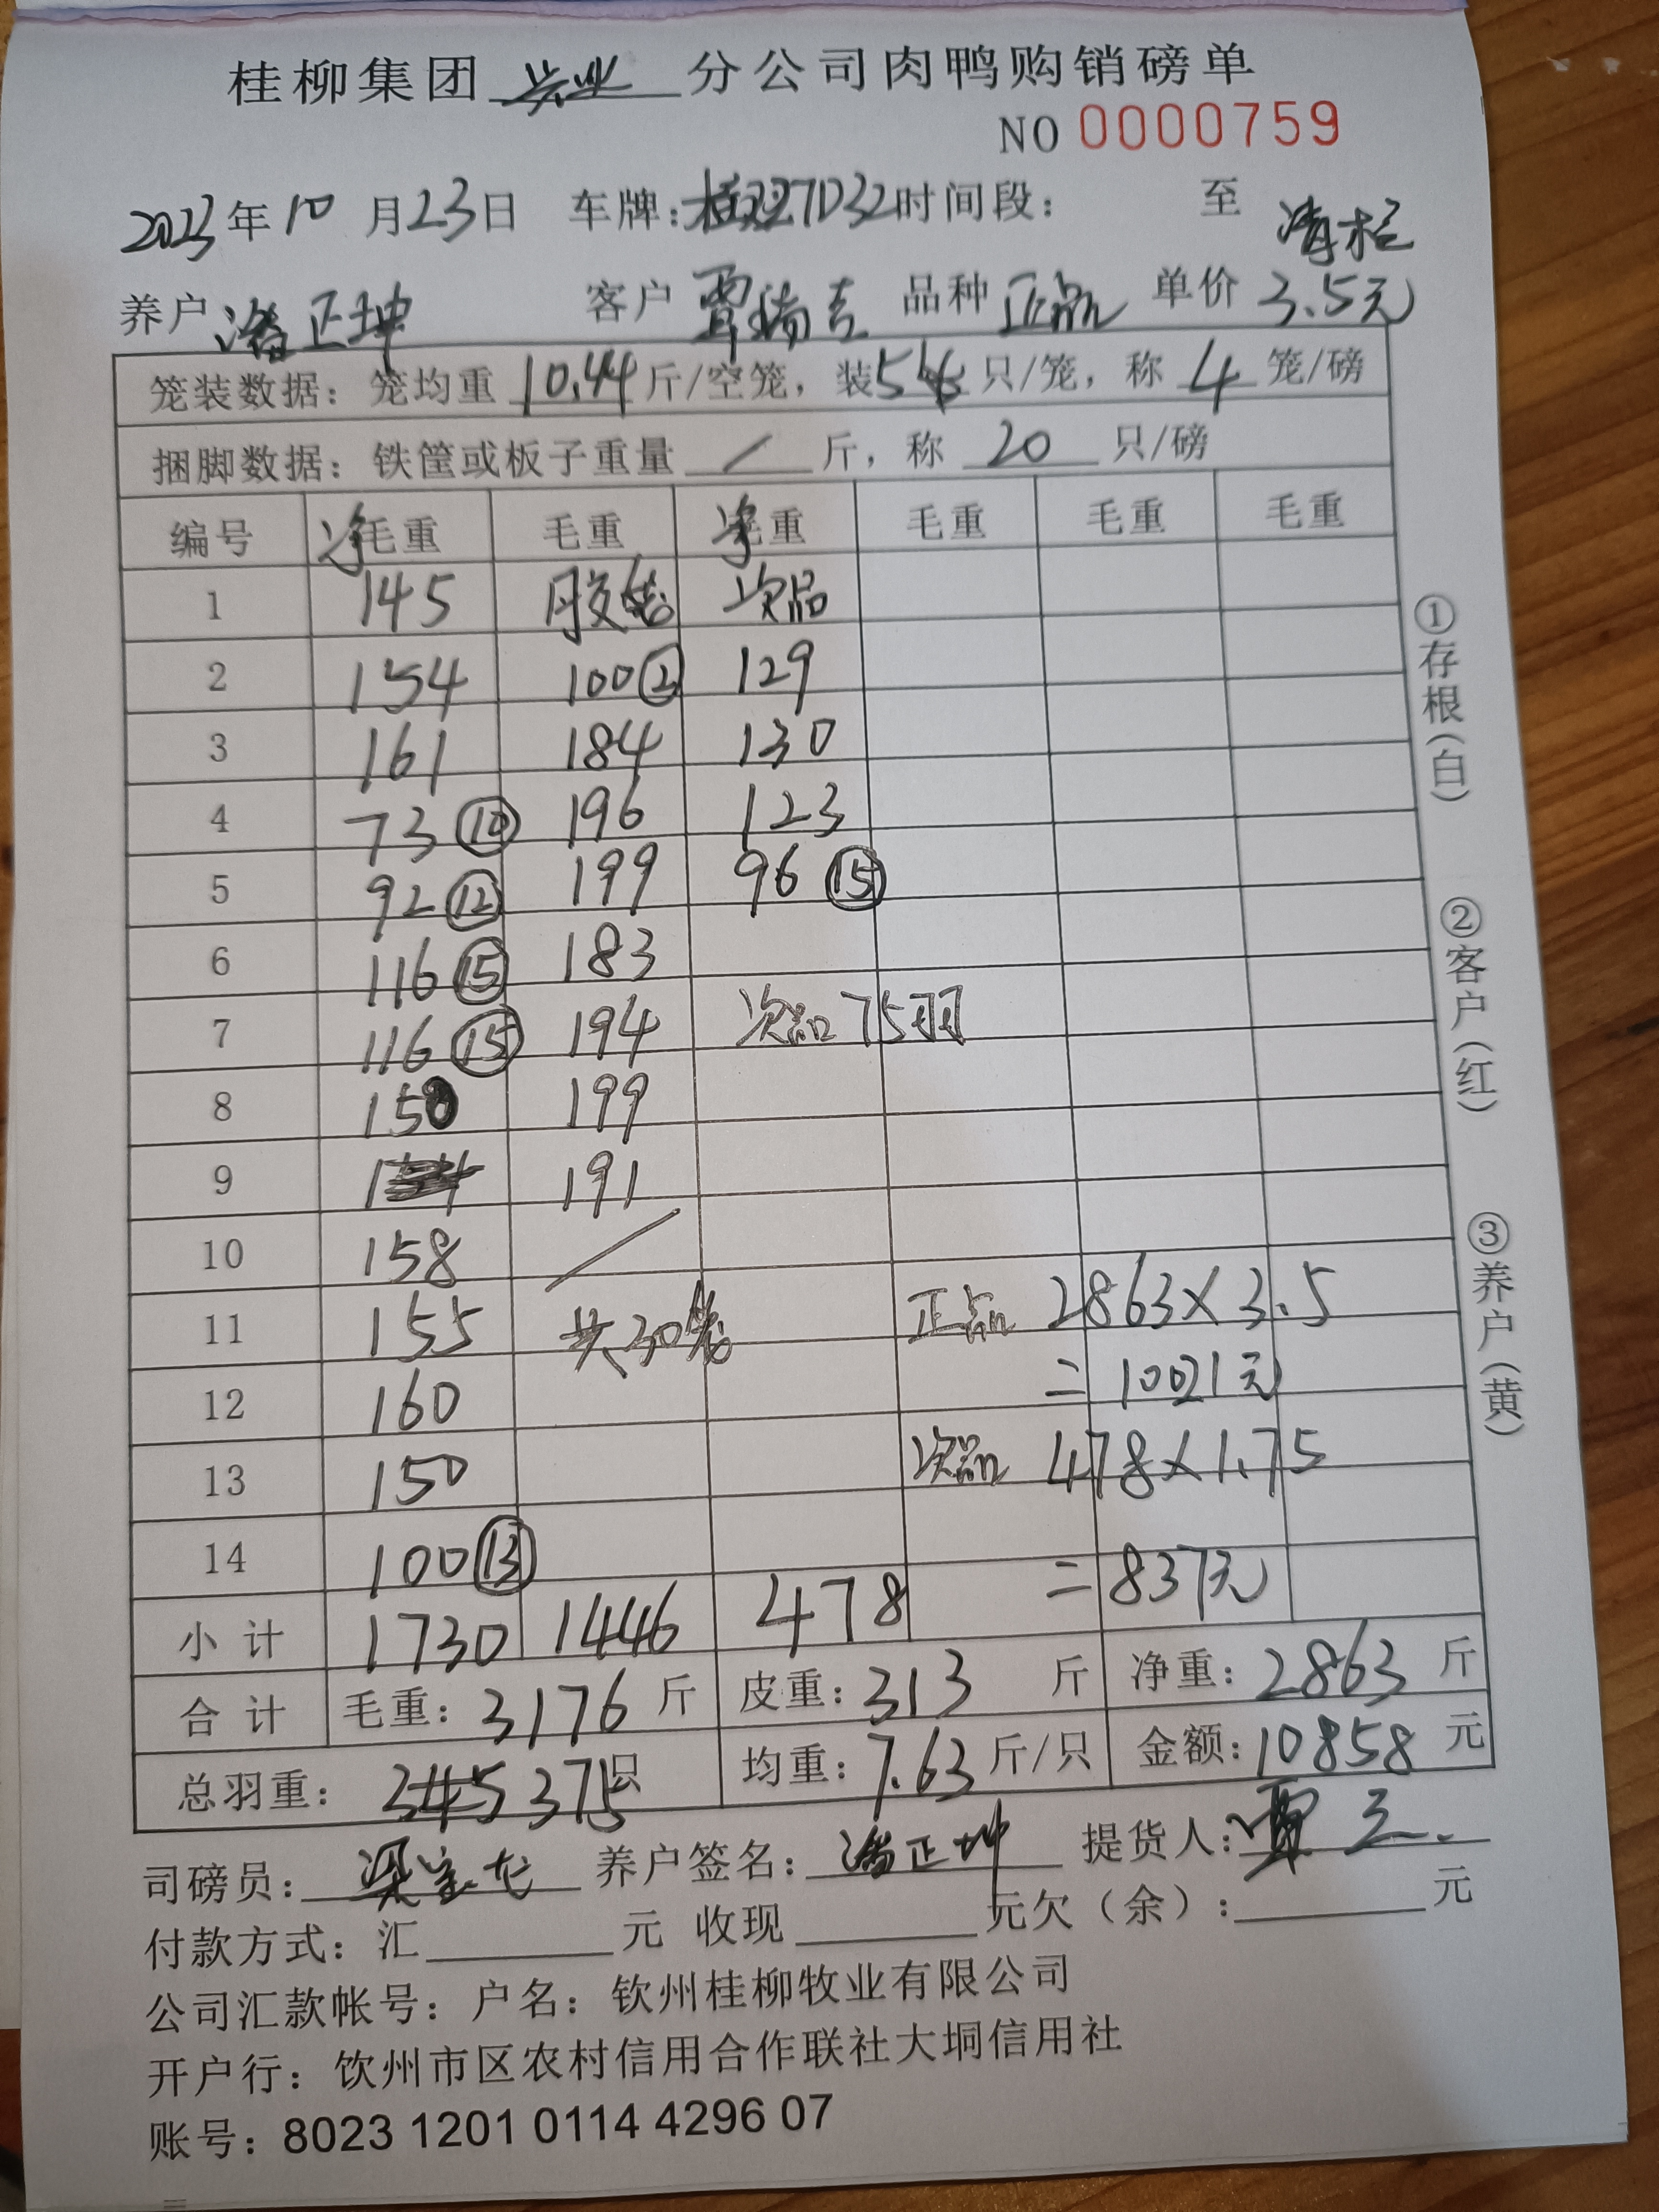 桂柳集团 兴业 分公司肉鸭购销磅单
NO 0000759
2023年 10 月 23 日 车牌: 7D32 时间段: 至
清栏
养户 潘正坤 客户 覃瑞吉 品种 正品 单价 3.5元
笼装数据: 笼均重 10.44 斤/空笼, 装 5 只/笼, 称 4 笼/磅
捆脚数据: 铁筐或板子重量 / 斤, 称 20 只/磅
编号 净毛重 毛重 净重 毛重 毛重 毛重
1 145 胶笼 次品
2 154 100② 129
3 161 184 130
4 73⑩ 196 123
5 92⑫ 199 96⑮
6 116⑮ 183
7 116⑮ 194 次品75羽
8 150 199
9 191
10 158 /
11 155 共30笼 正品 2863×3.5
12 160 = 10021元
13 150 次品 478×1.75
14 100⑬ = 837元
小计 1730 1446 478
合计 毛重: 3176 斤 皮重: 313 斤 净重: 2863 斤
总羽重: 345 375只 均重: 7.63 斤/只 金额: 10858 元
司磅员: 养户签名: 潘正坤 提货人: 覃
付款方式: 汇 元 收现 元欠(余): 元
公司汇款帐号: 户名: 钦州桂柳牧业有限公司
开户行: 钦州市区农村信用合作联社大垌信用社
账号: 8023 1201 0114 4296 07
①存根(白)
②客户(红)
③养户(黄)